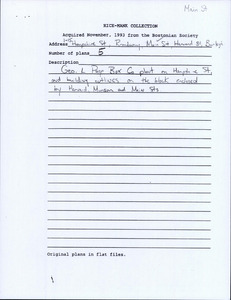 Main St
RICE-MARK COLLECTION
Acquired November, 1993 from the Bostonian Society
Address Hampshire St, Main St Harvard St
Number of plans 5
Description
Geo. L Page Box Co plant on Hampshire St,
and building on the block enclosed
by Harvard, and Main Sts
Original plans in flat files.